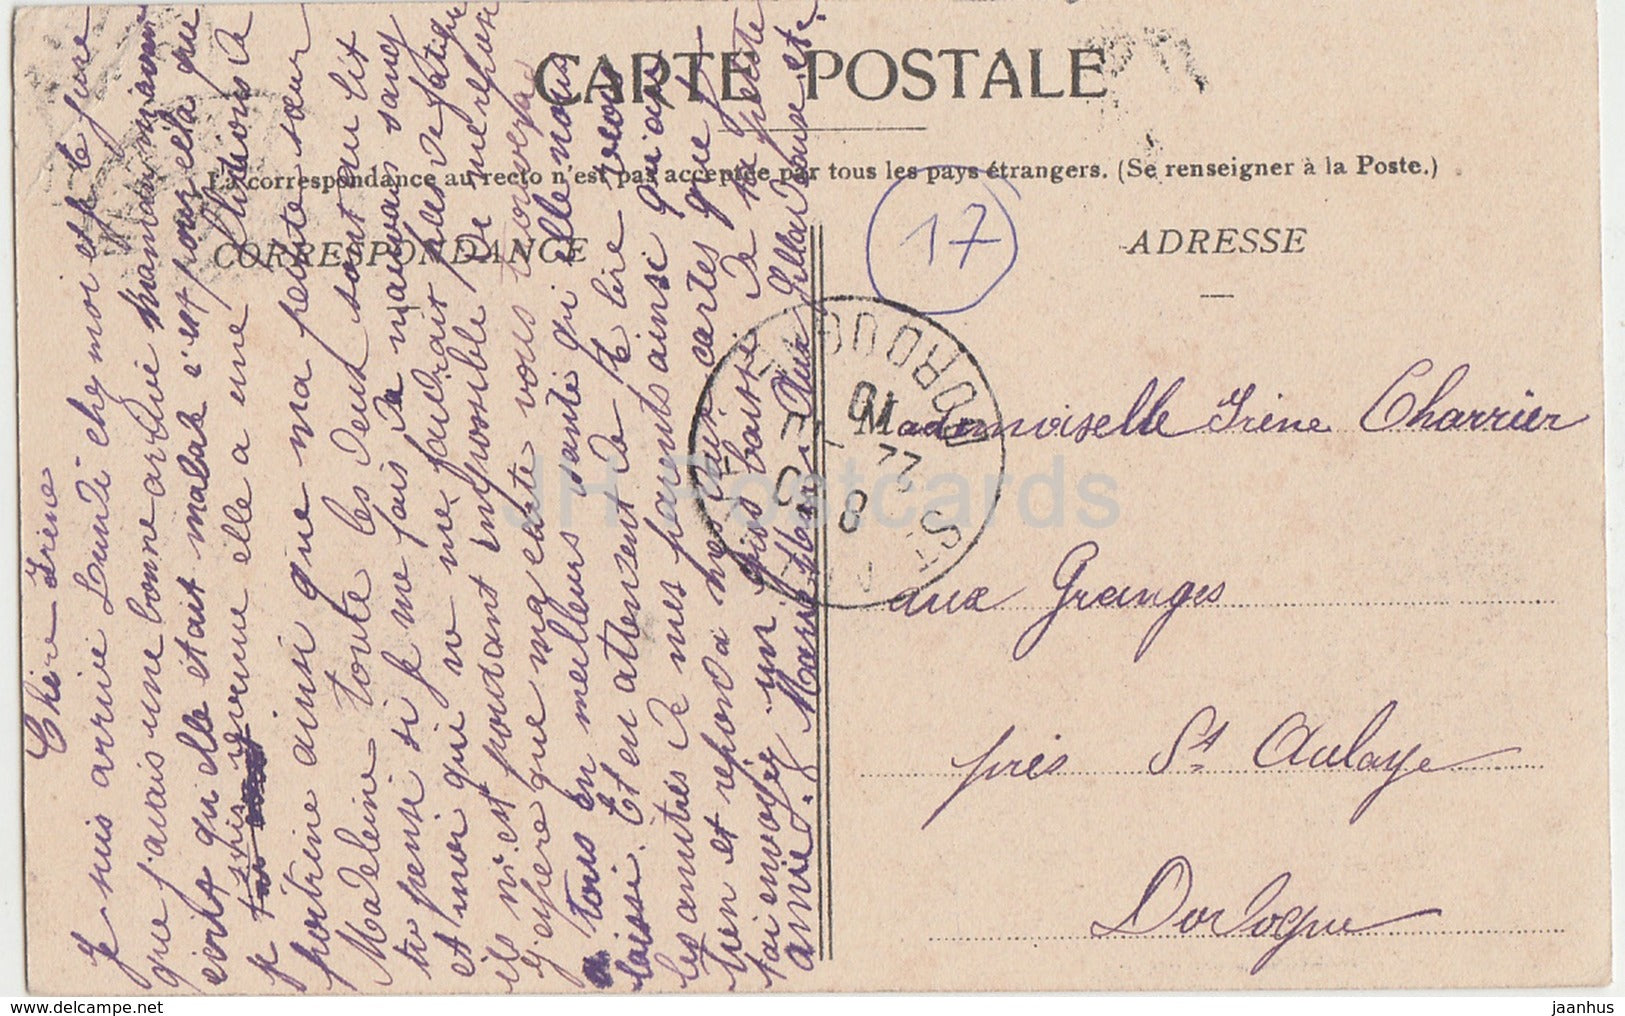 CARTE POSTALE
La correspondance au recto n'est pas acceptée par tous les pays étrangers. (Se renseigner à la Poste.)
CORRESPONDANCE
ADRESSE
17
Mademoiselle Irène Charrier
aux Granges
près St Aulaye
Dordogne
DORDOGNE
22
8
Chère Irène
Je suis arrivé Lundi chez moi et je fure
que j'avais une bonne arrivée maman
écrit qu'elle était malade c'est pour cela que
je suis venue elle a une fluxions la
poitrine ainsi que ma petite sœur
Madeleine toute les deux sont au lit
tu pense si je me fais de mauvais sang
et moi qui ne me faudrait pas de fatigue
il m'est pourtant impossible de me reposer
J'espère que ma carte vous trouvera
tous en meilleurs santé qui elle nous
laisse. Et en attendant de te lire
les amitiés de mes parents ainsi qu'aux
tien et reponds a mes cartes que je
t'ai envoyés un gros baisser de ta petite
amie. Marie
JH Postcards
jaanhus